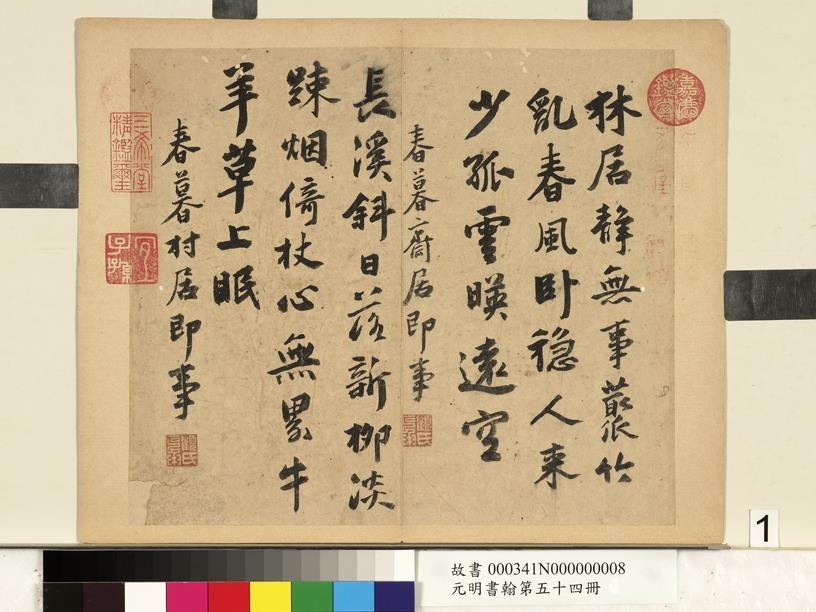 林居靜無事叢竹
亂春風卧穏人来
少孤雲暎遠空
春暮齋居即事
長溪斜日落新栁淡
踈烟倚杖心無累牛
羊草上眠
春暮村居即事
1
故書 000341N000000008
元明書翰第五十四冊